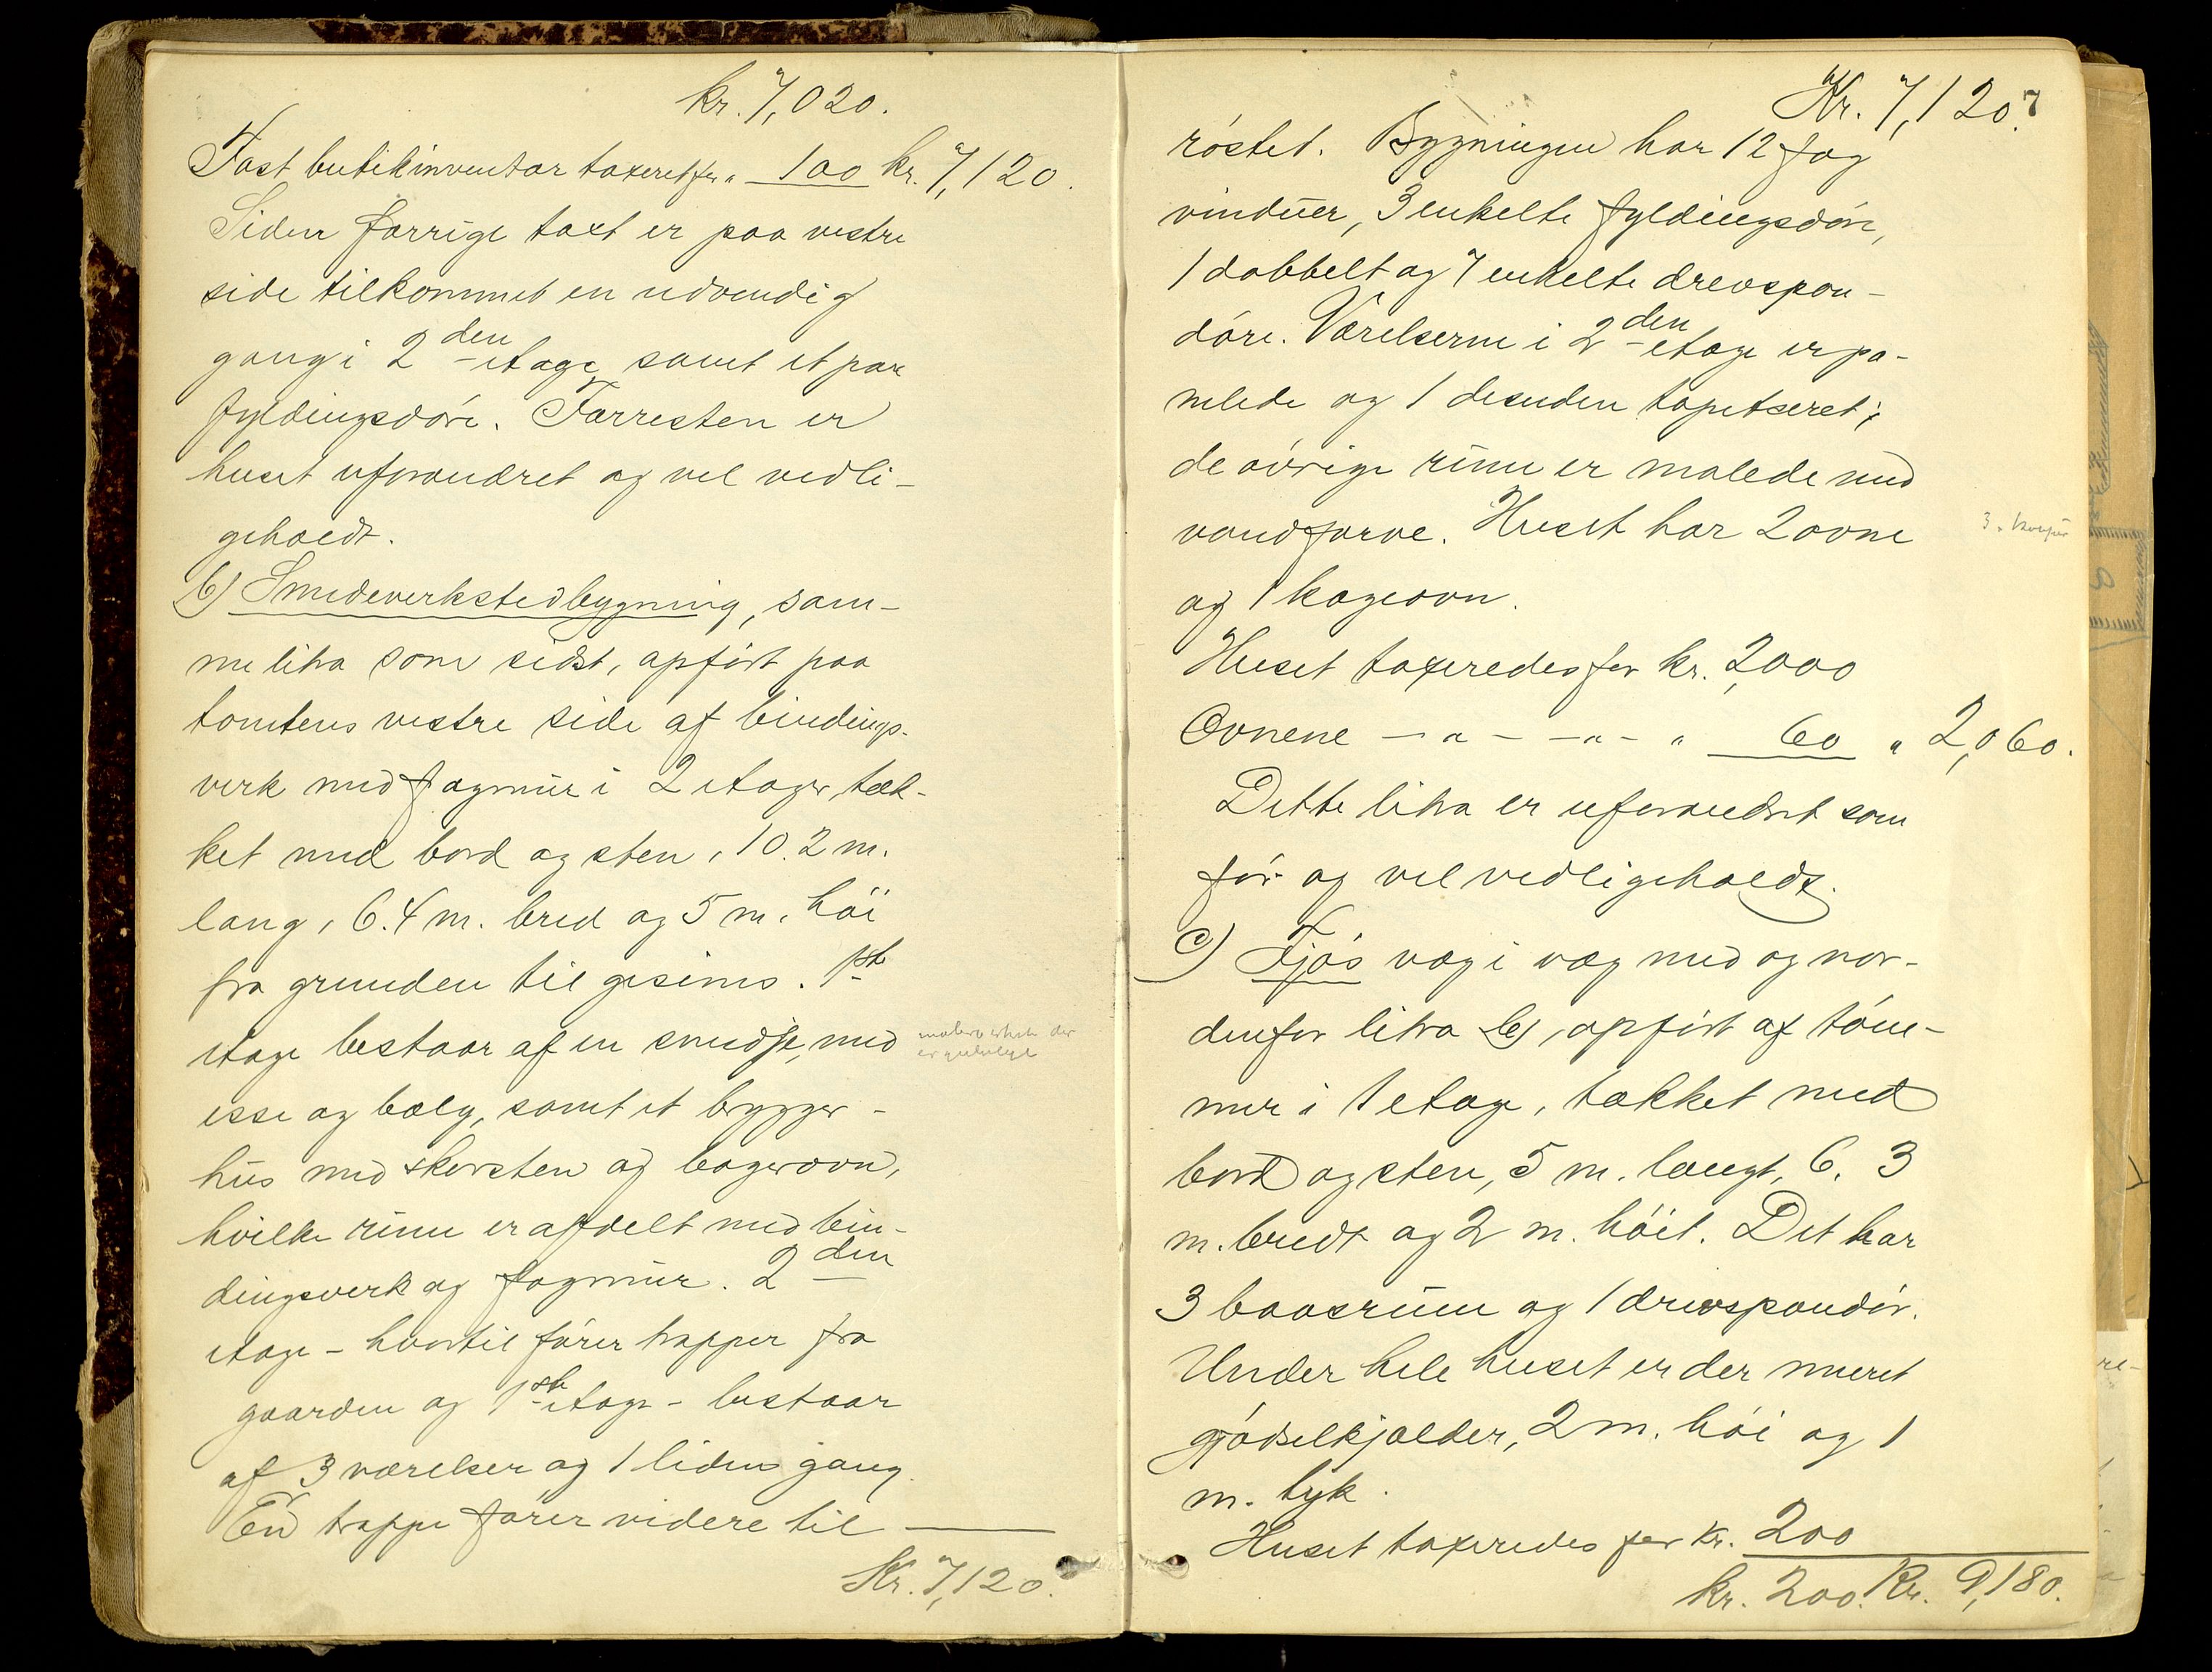 kr. 7,020.
Fast butikinventar taxeret for " 100 kr. 7,120.
Siden forrige taxt er paa vestre
side tilkommet en udvendig
gang i 2den etage samt et par
fyldingsdøre. Forresten er
huset uforandret og vel vedli-
geholdt.
b) Smedeverkstedbygning, sam-
me litra som sidst, opført paa
tomtens vestre side af bindings-
verk med fagmur i 2 etager, tæk-
ket med bord og sten, 10.2 m.
lang, 6.4 m. bred og 5 m. høi
fra grunden til gesims. 1ste
etage bestaar af en smedje, med
esse og bælg, samt et brygger-
hus med skorsten og bagerovn,
hvilke rum er afdelt med bin-
dingsverk og fagmur. 2den
etage - hvortil fører trapper fra
gaarden og 1ste etage - bestaar
af 3 værelser og 1 liden gang.
En trappe fører videre til
Kr. 7,120.
7
Kr. 7,120.
røstet. Bygningen har 12 fag
vinduer, 3 enkelte fyldingsdøre,
1 dobbelt og 7 enkelte drevspon-
døre. Værelserne i 2den etage er pa-
nelede og 1 desuden tapetseret;
de øvrige rum er malede med
vandfarve. Huset har 2 ovne
og 1 kogeovn.
Huset taxeredes for kr. 2,000
Ovnene - " - - " - " 60 " 2,060.
Dette litra er uforandret som
før og vel vedligeholdt.
c) Fjøs væg i væg med og nor-
denfor litra b), opført af tøm-
mer i 1 etage, tækket med
bord og sten, 5 m. langt, 6.3
m. bredt og 2 m. høit. Det har
3 baasrum og 1 drevspondør.
Under hele huset er der muret
gjødselkjælder, 2 m. høi og 1
m. tyk.
Huset taxeredes for kr. 200
kr. 200. Kr. 9,180.